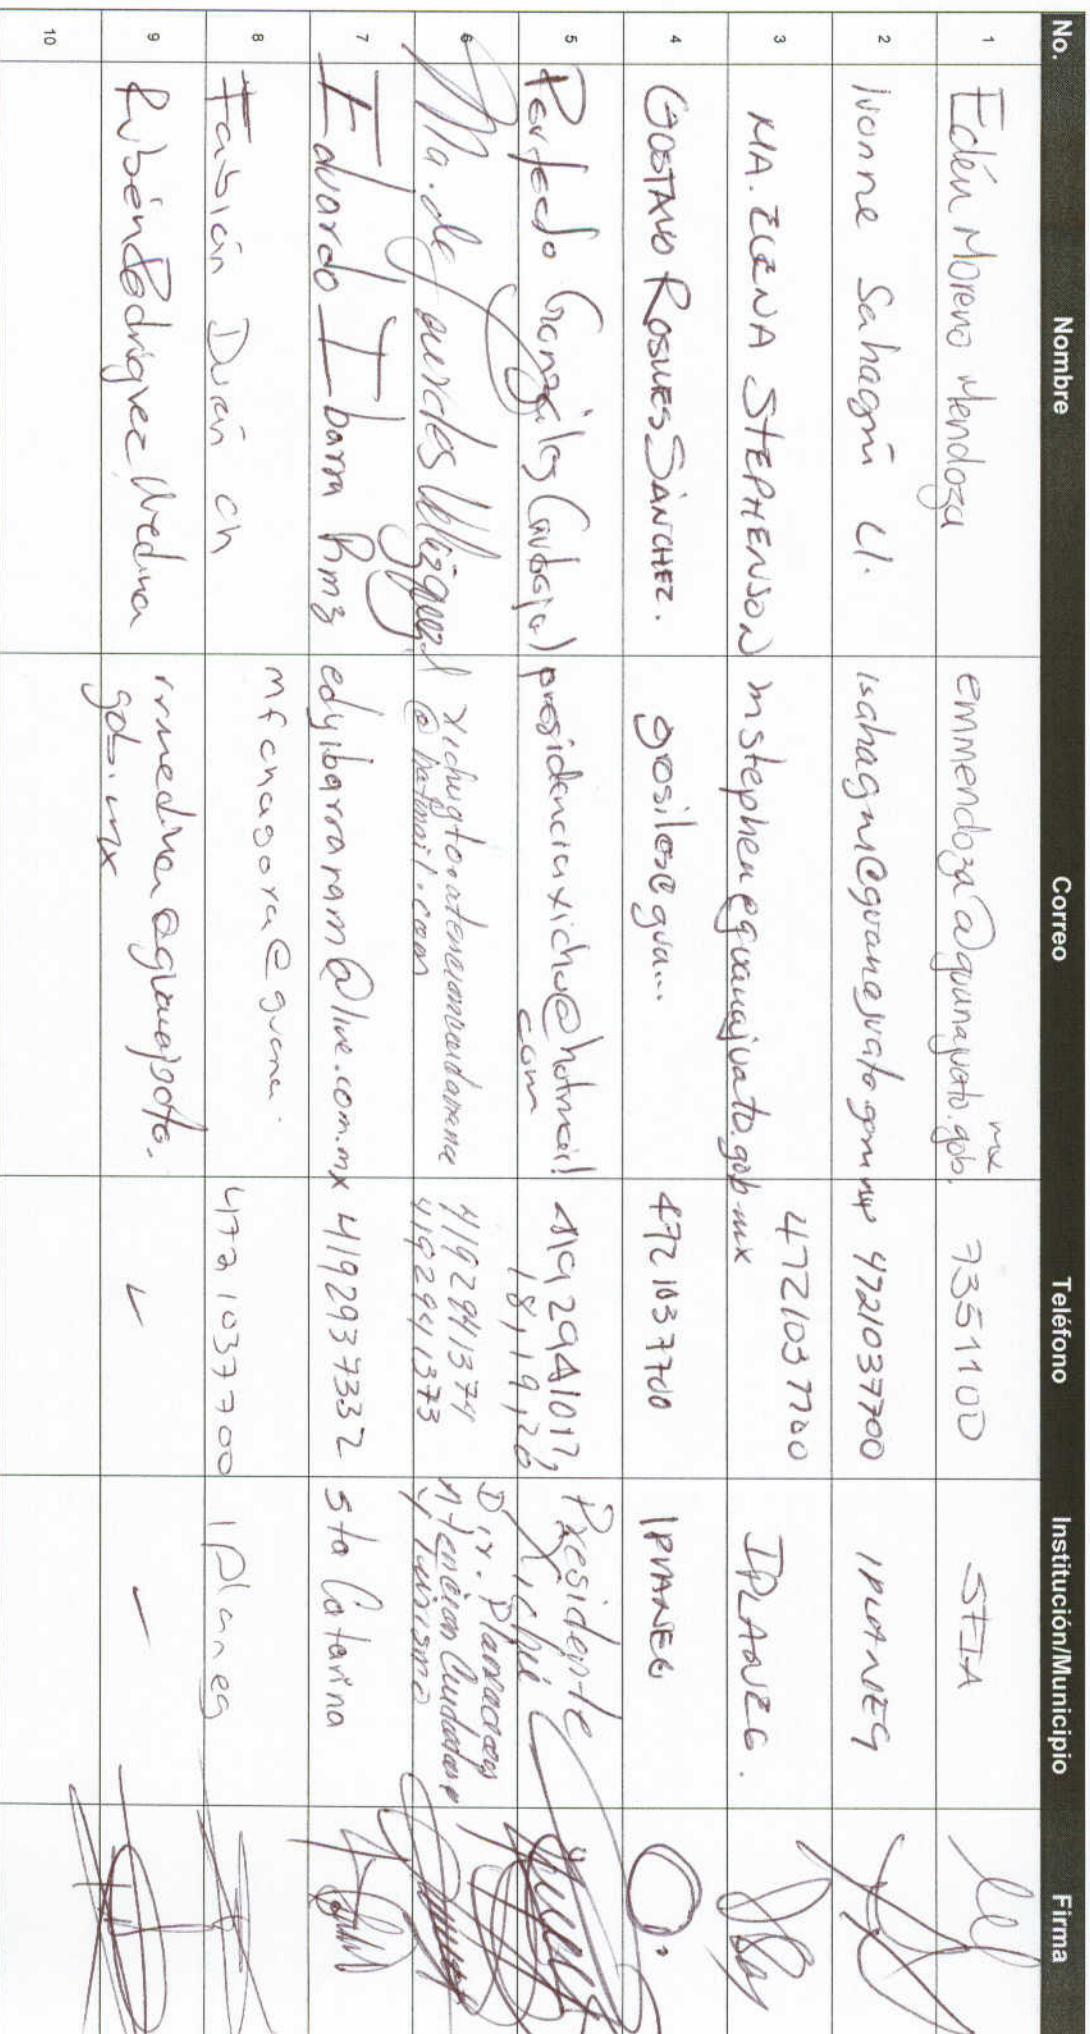 No. Nombre Correo Teléfono Institución/Municipio Firma
1 Edén Moreno Mendoza emmendoza@guanajuato.gob.mx 7351100 STIA
2 Ivonne Sahagún U. isahagun@guanajuato.gom.mx 4721037700 IPLANEG
3 MA. ELENA STEPHENSON mstephen@guanajuato.gob.mx 4721037700 IPLANEG.
4 GUSTAVO ROSILES SÁNCHEZ. grosiles@gua... 4721037700 IPLANEG
5 Perfecto Gonzáles Carbajal presidenciaxichu@hotmail 4192941017, Presidente
com 18, 19, 20 Xichú
6 Ma. de Lourdes Velázquez 4192941374 Dir. Planeación
@hotmail.com 4192941373 Atención Ciudadana
y Turismo
7 Eduardo Ibarra Rmz edyibarraram@live.com.mx 4192937332 Sta Catarina
8 Fabián Durán Ch 4721037700 Iplaneg
9 Rubén Rodríguez Medina rrmedina@guanajuato.
gob.mx
10